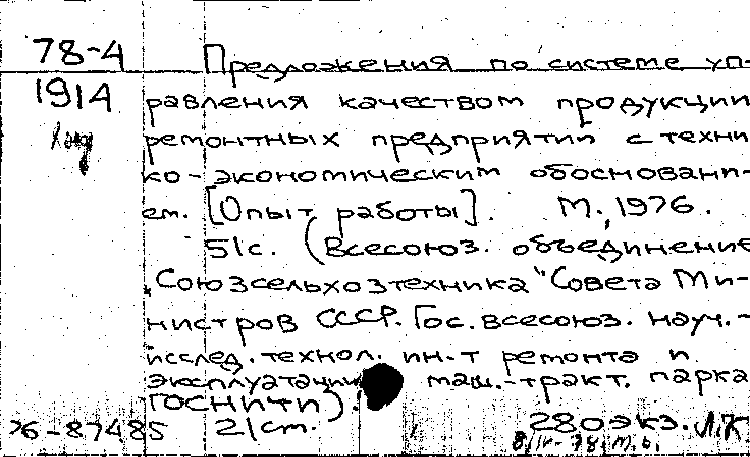 78-4 Предложения по системе уп-
1914 равления качеством продукции
ремонтных предприятий с техни
ко-экономическим обосновани-
ем. [Опыт работы]. М., 1976.
51с. (Всесоюз. объединение
"Союзсельхозтехника" Совета Ми-
нистров СССР. Гос. всесоюз. науч.-
исслед. технол. ин-т ремонта и
эксплуатации маш.-тракт. парка
ГОСНИТИ).
76-87485 21 ст. 280 экз. Л.К